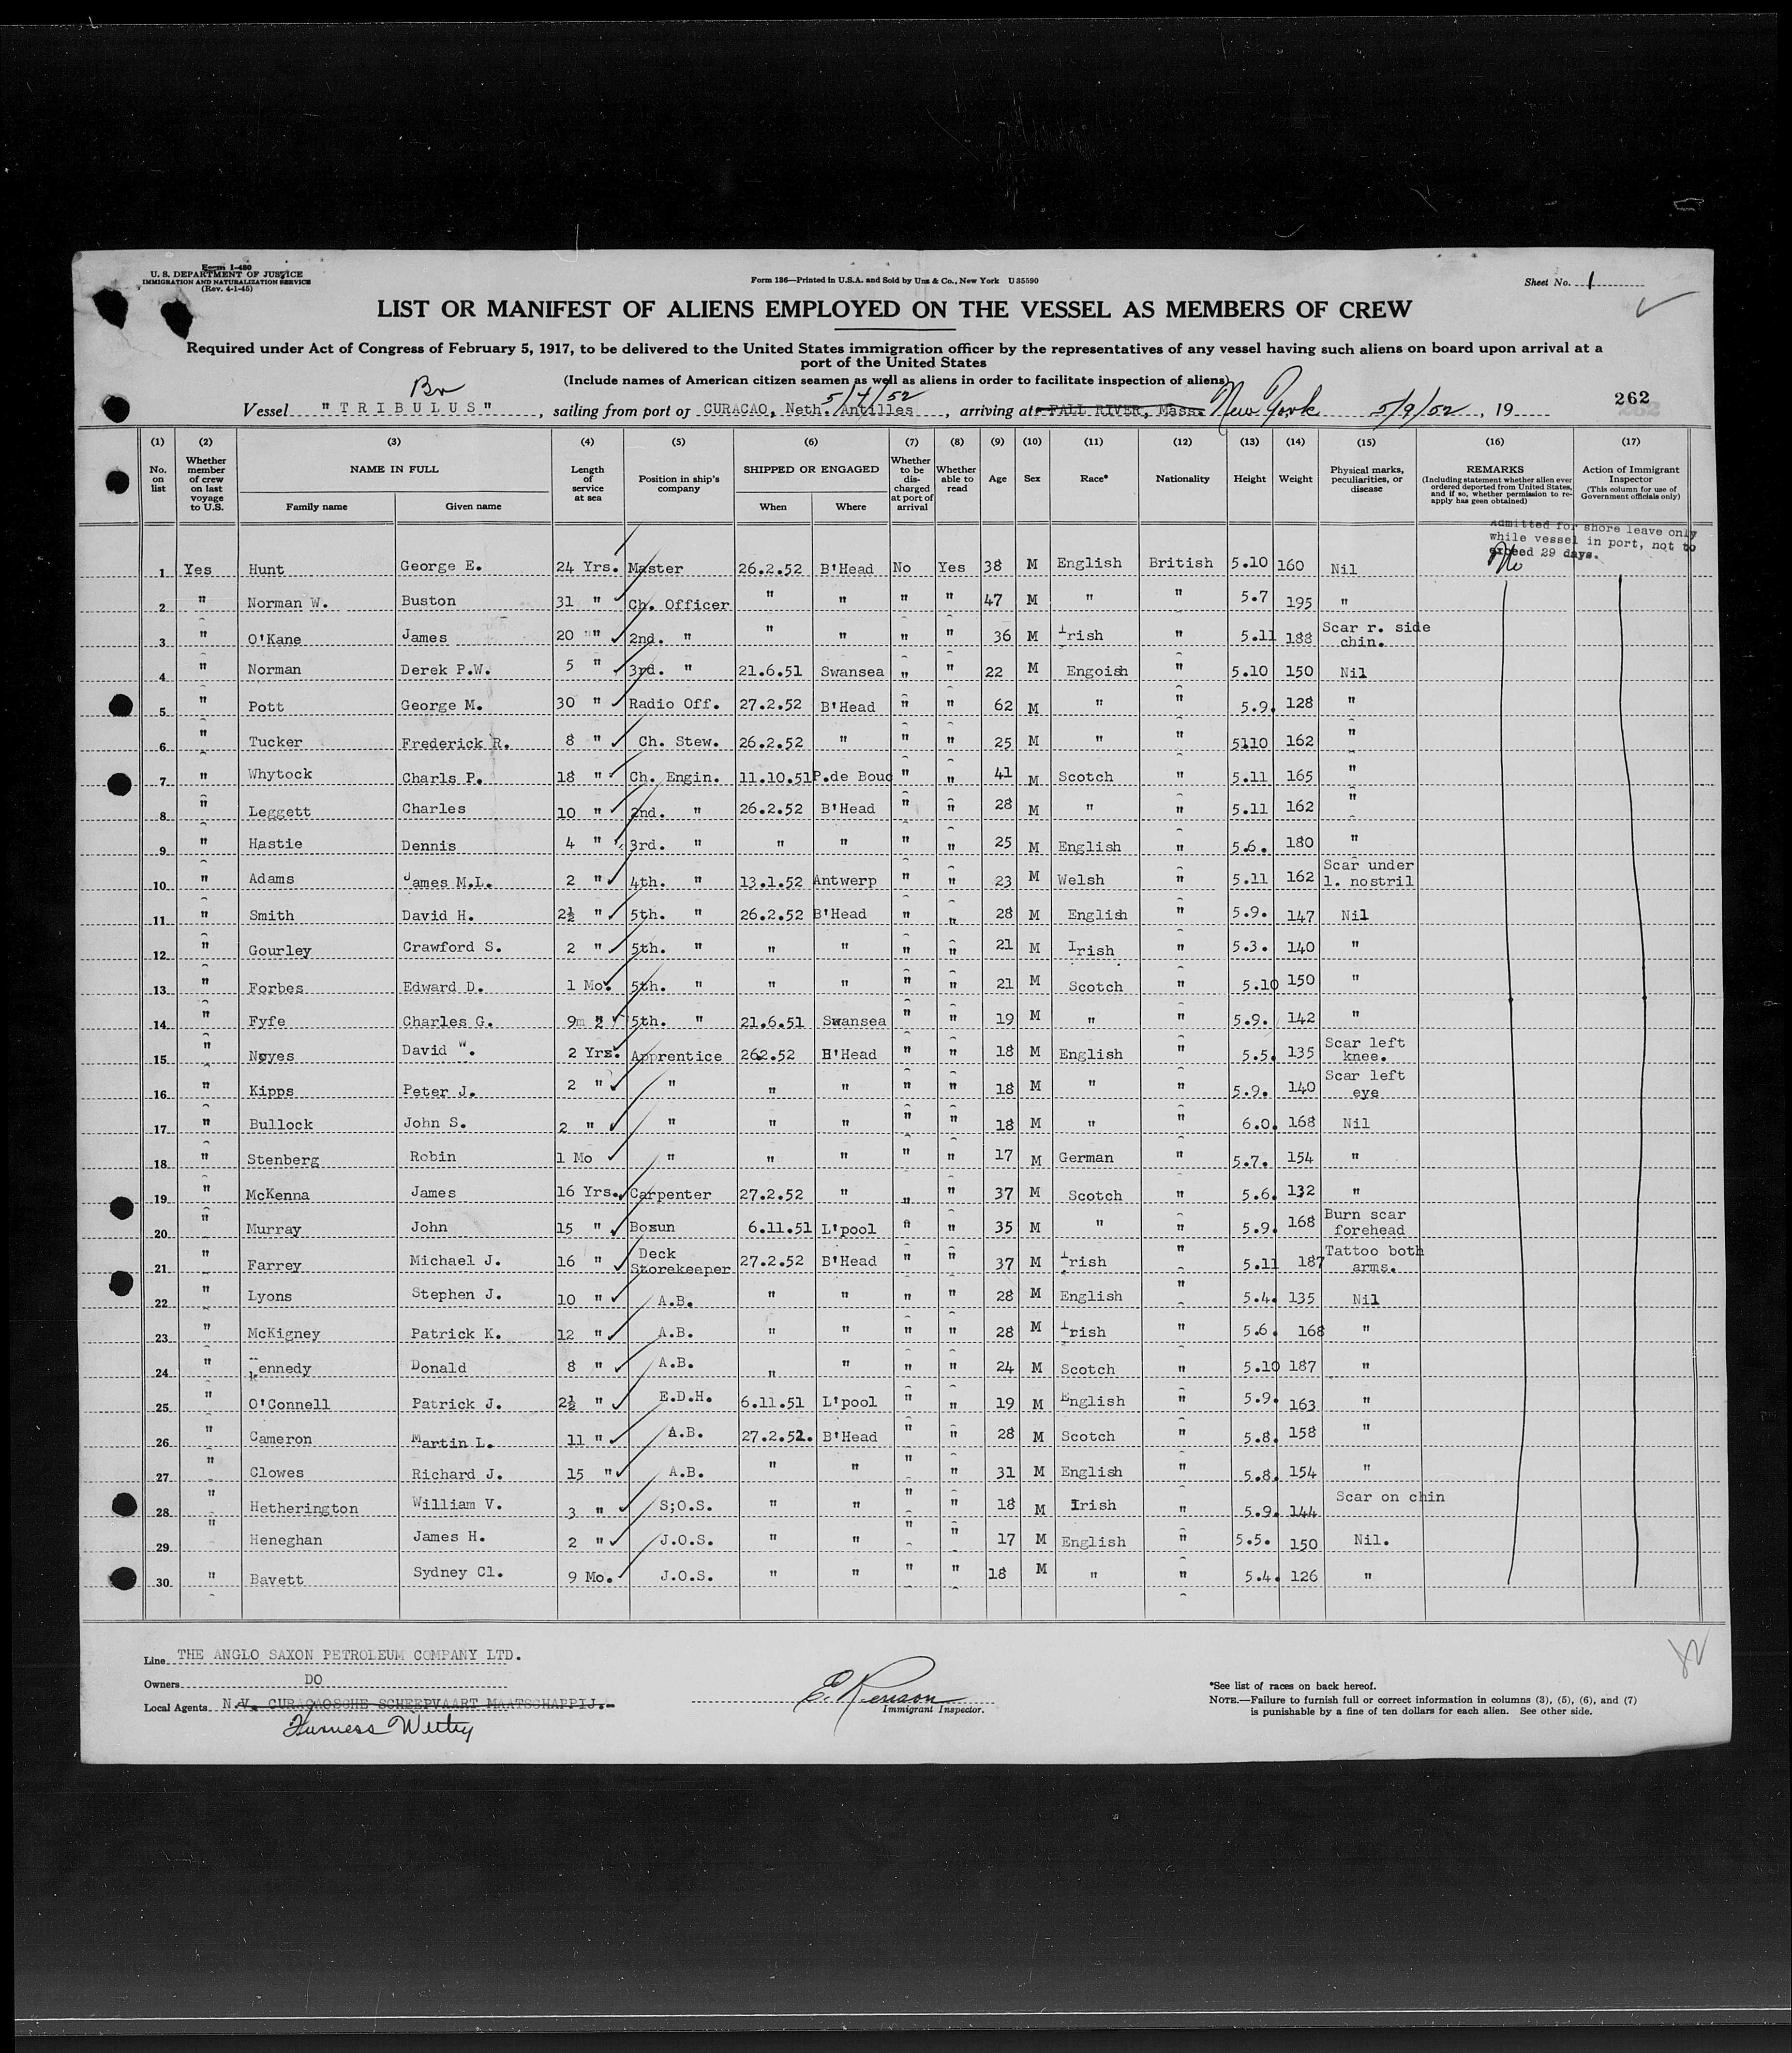 Form I-480
U. S. DEPARTMENT OF JUSTICE
IMMIGRATION AND NATURALIZATION SERVICE
(Rev. 4-1-45)
Form 136—Printed in U.S.A. and Sold by Unz & Co., New York U 35590
Sheet No. 1
LIST OR MANIFEST OF ALIENS EMPLOYED ON THE VESSEL AS MEMBERS OF CREW
Required under Act of Congress of February 5, 1917, to be delivered to the United States immigration officer by the representatives of any vessel having such aliens on board upon arrival at a
port of the United States
(Include names of American citizen seamen as well as aliens in order to facilitate inspection of aliens)
Br 5/4/52
Vessel "TRIBULUS", sailing from port of CURACAO, Neth. Antilles, arriving at FALL RIVER, Mass. New York 5/9/52, 19
262
(1) (2) (3) (4) (5) (6) (7) (8) (9) (10) (11) (12) (13) (14) (15) (16) (17)
No. on list
Whether member of crew on last voyage to U.S.
NAME IN FULL
Family name Given name
Length of service at sea
Position in ship's company
SHIPPED OR ENGAGED
When Where
Whether to be discharged at port of arrival
Whether able to read
Age Sex Race* Nationality Height Weight
Physical marks, peculiarities, or disease
REMARKS
(Including statement whether alien ever ordered deported from United States, and if so, whether permission to reapply has geen obtained)
Action of Immigrant Inspector
(This column for use of Government officials only)
Admitted for shore leave only
while vessel in port, not to
exceed 29 days.
No
1 Yes Hunt George E. 24 Yrs. Master 26.2.52 B'Head No Yes 38 M English British 5.10 160 Nil
2 " Norman W. Buston 31 " Ch. Officer " " " " 47 M " " 5.7 195 "
3 " O'Kane James 20 " 2nd. " " " " " 36 M Irish " 5.11 188 Scar r. side chin.
4 " Norman Derek P.W. 5 " 3rd. " 21.6.51 Swansea " " 22 M Engoish " 5.10 150 Nil
5 " Pott George M. 30 " Radio Off. 27.2.52 B'Head " " 62 M " " 5.9. 128 "
6 " Tucker Frederick R. 8 " Ch. Stew. 26.2.52 " " " 25 M " " 5110 162 "
7 " Whytock Charls P. 18 " Ch. Engin. 11.10.51 P.de Bouc " " 41 M Scotch " 5.11 165 "
8 " Leggett Charles 10 " 2nd. " 26.2.52 B'Head " " 28 M " " 5.11 162 "
9 " Hastie Dennis 4 " 3rd. " " " " " 25 M English " 5.6. 180 "
10 " Adams James M.L. 2 " 4th. " 13.1.52 Antwerp " " 23 M Welsh " 5.11 162 Scar under l. nostril
11 " Smith David H. 2½ " 5th. " 26.2.52 B'Head " " 28 M English " 5.9. 147 Nil
12 " Gourley Crawford S. 2 " 5th. " " " " " 21 M Irish " 5.3. 140 "
13 " Forbes Edward D. 1 Mo. 5th. " " " " " 21 M Scotch " 5.10 150 "
14 " Fyfe Charles G. 9m " 5th. " 21.6.51 Swansea " " 19 M " " 5.9. 142 "
15 " Noyes David W. 2 Yrs. Apprentice 262.52 B'Head " " 18 M English " 5.5. 135 Scar left knee.
16 " Kipps Peter J. 2 " " " " " " 18 M " " 5.9. 140 Scar left eye
17 " Bullock John S. 2 " " " " " " 18 M " " 6.0. 168 Nil
18 " Stenberg Robin 1 Mo " " " " " 17 M German " 5.7. 154 "
19 " McKenna James 16 Yrs. Carpenter 27.2.52 " " " 37 M Scotch " 5.6. 132 "
20 " Murray John 15 " Bosun 6.11.51 L'pool " " 35 M " " 5.9. 168 Burn scar forehead
21 " Farrey Michael J. 16 " Deck Storekeeper 27.2.52 B'Head " " 37 M Irish " 5.11 187 Tattoo both arms.
22 " Lyons Stephen J. 10 " A.B. " " " " 28 M English " 5.4. 135 Nil
23 " McKigney Patrick K. 12 " A.B. " " " " 28 M Irish " 5.6. 168 "
24 " Kennedy Donald 8 " A.B. " " " " 24 M Scotch " 5.10 187 "
25 " O'Connell Patrick J. 2½ " E.D.H. 6.11.51 L'pool " " 19 M English " 5.9. 163 "
26 " Cameron Martin L. 11 " A.B. 27.2.52. B'Head " " 28 M Scotch " 5.8. 158 "
27 " Clowes Richard J. 15 " A.B. " " " " 31 M English " 5.8. 154 "
28 " Hetherington William V. 3 " S;O.S. " " " " 18 M Irish " 5.9. 144 Scar on chin
29 " Heneghan James H. 2 " J.O.S. " " " " 17 M English " 5.5. 150 Nil.
30 " Bavett Sydney Cl. 9 Mo. J.O.S. " " " " 18 M " " 5.4. 126 "
Line THE ANGLO SAXON PETROLEUM COMPANY LTD.
Owners DO
Local Agents N.V. CURACAOSCHE SCHEEPVAART MAATSCHAPPIJ.-
Furness Withy
Immigrant Inspector.
*See list of races on back hereof.
NOTE.—Failure to furnish full or correct information in columns (3), (5), (6), and (7)
is punishable by a fine of ten dollars for each alien. See other side.